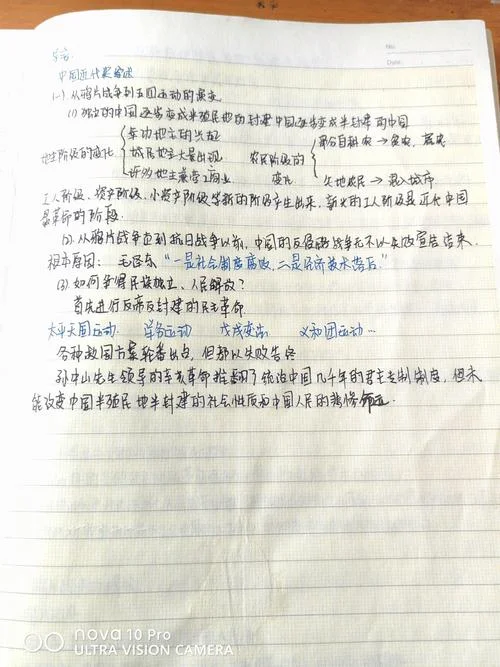 No:
Date:
导言
中国近代史综述
(一).从鸦片战争到五四运动的演变
(1) 独立的中国逐步变成半殖民地的封建中国逐步变成半封建的中国
军功地主的兴起
地主阶级的变化 城居地主大量出现 农民阶级的变化 部分自耕农→贫农、雇农
许多地主兼营工商业 失地农民→混入城市
工人阶级、资产阶级、小资产阶级等新的阶级产生出来,新兴的工人阶级是近代中国
最革命的阶段
(2). 从鸦片战争直到抗日战争以前,中国的反侵略战争无不以失败宣告结束.
根本原因: 毛泽东“一是社会制度腐败,二是经济技术落后”
(3) 如何争得民族独立、人民解放?
首先进行反帝反封建的民主革命
太平天国运动. 洋务运动 戊戌变法 义和团运动…
各种救国方案轮番出点,但都以失败告终
孙中山先生领导的辛亥革命推翻了统治中国几千年的君主专制制度,但未
能改变中国半殖民地半封建的社会性质和中国人民的悲惨命运.
nova 10 Pro
ULTRA VISION CAMERA